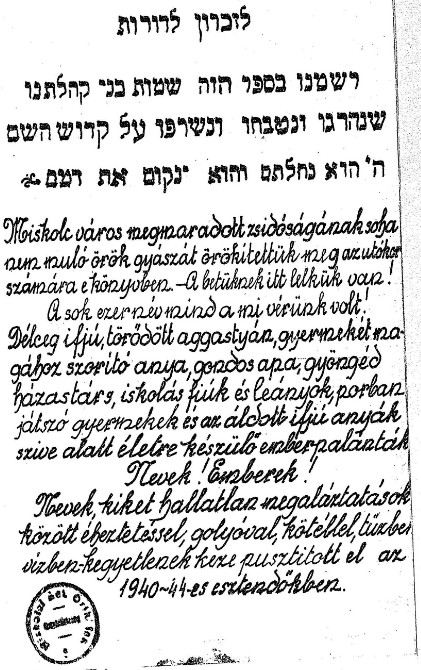 לזכרון לדורות
רשמנו בספר הזה שמות בני קהלתנו
שנהרגו ונטבחו ונשרפו על קדוש השם
ה' הוא נחלתם והוא ינקום את דמם
Miskolc város megmaradott zsidóságának soha
nem muló örök gyászát örökitettük meg az utókor
számára e könyvben. – A betüknek itt lelkük van!
A sok ezer név mind a mi vérünk volt!
Délceg ifjú, törődött aggastyán, gyermekét ma-
gához szoritó anya, gondos apa, gyöngéd
hazastárs, iskolás fiúk és leányok, porban
játszó gyermekek és az áldott ifjú anyák
szive alatt életre készülő emberpalánták
Nevek! Emberek!
Nevek, kiket hallatlan megaláztatások
között éheztetéssel, golyóval, kötéllel, tüzben
vizben-kegyetlenek keze pusztitott el az
1940-44-es esztendőkben.